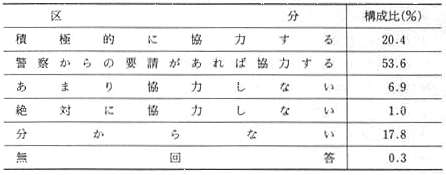 区分 構成比(%)
積極的に協力する 20.4
警察からの要請があれば協力する 53.6
あまり協力しない 6.9
絶対に協力しない 1.0
分からない 17.8
無回答 0.3